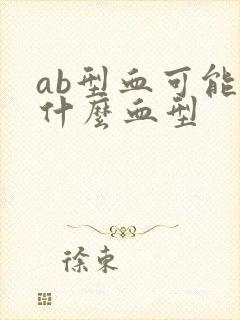 ab型血可能
什麼血型
徐東